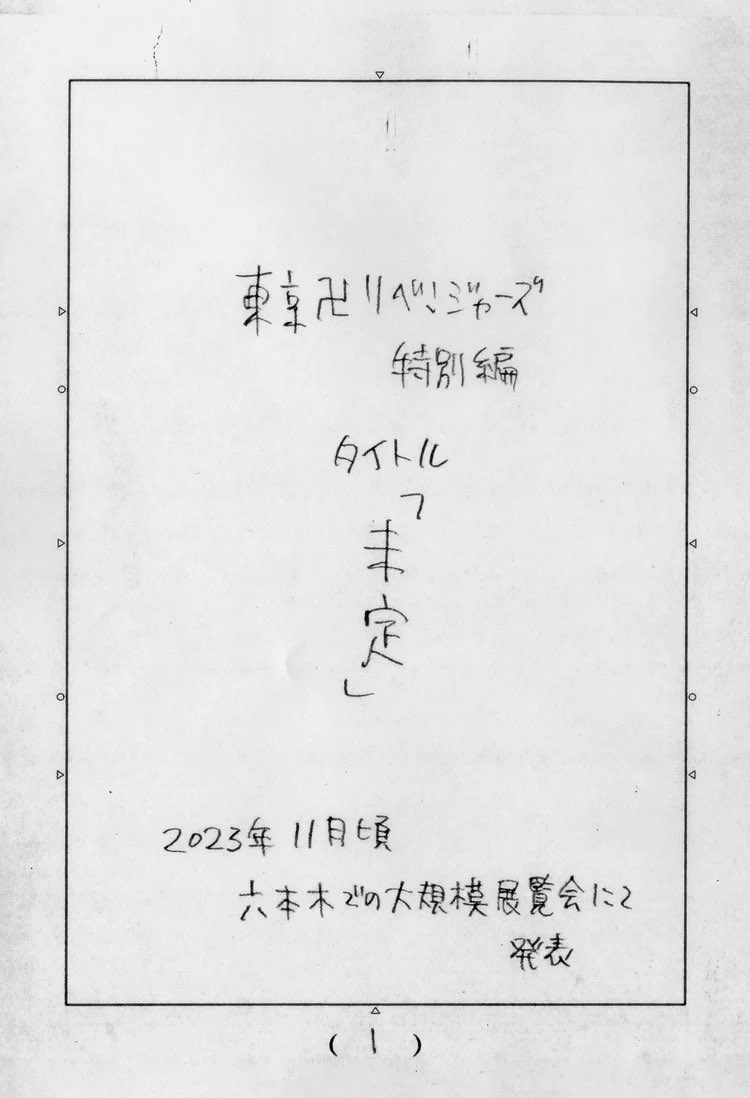 東京卍リベンジャーズ
特別編
タイトル
「未定」
2023年 11月頃
六本木での大規模展覧会にて
発表
(1)